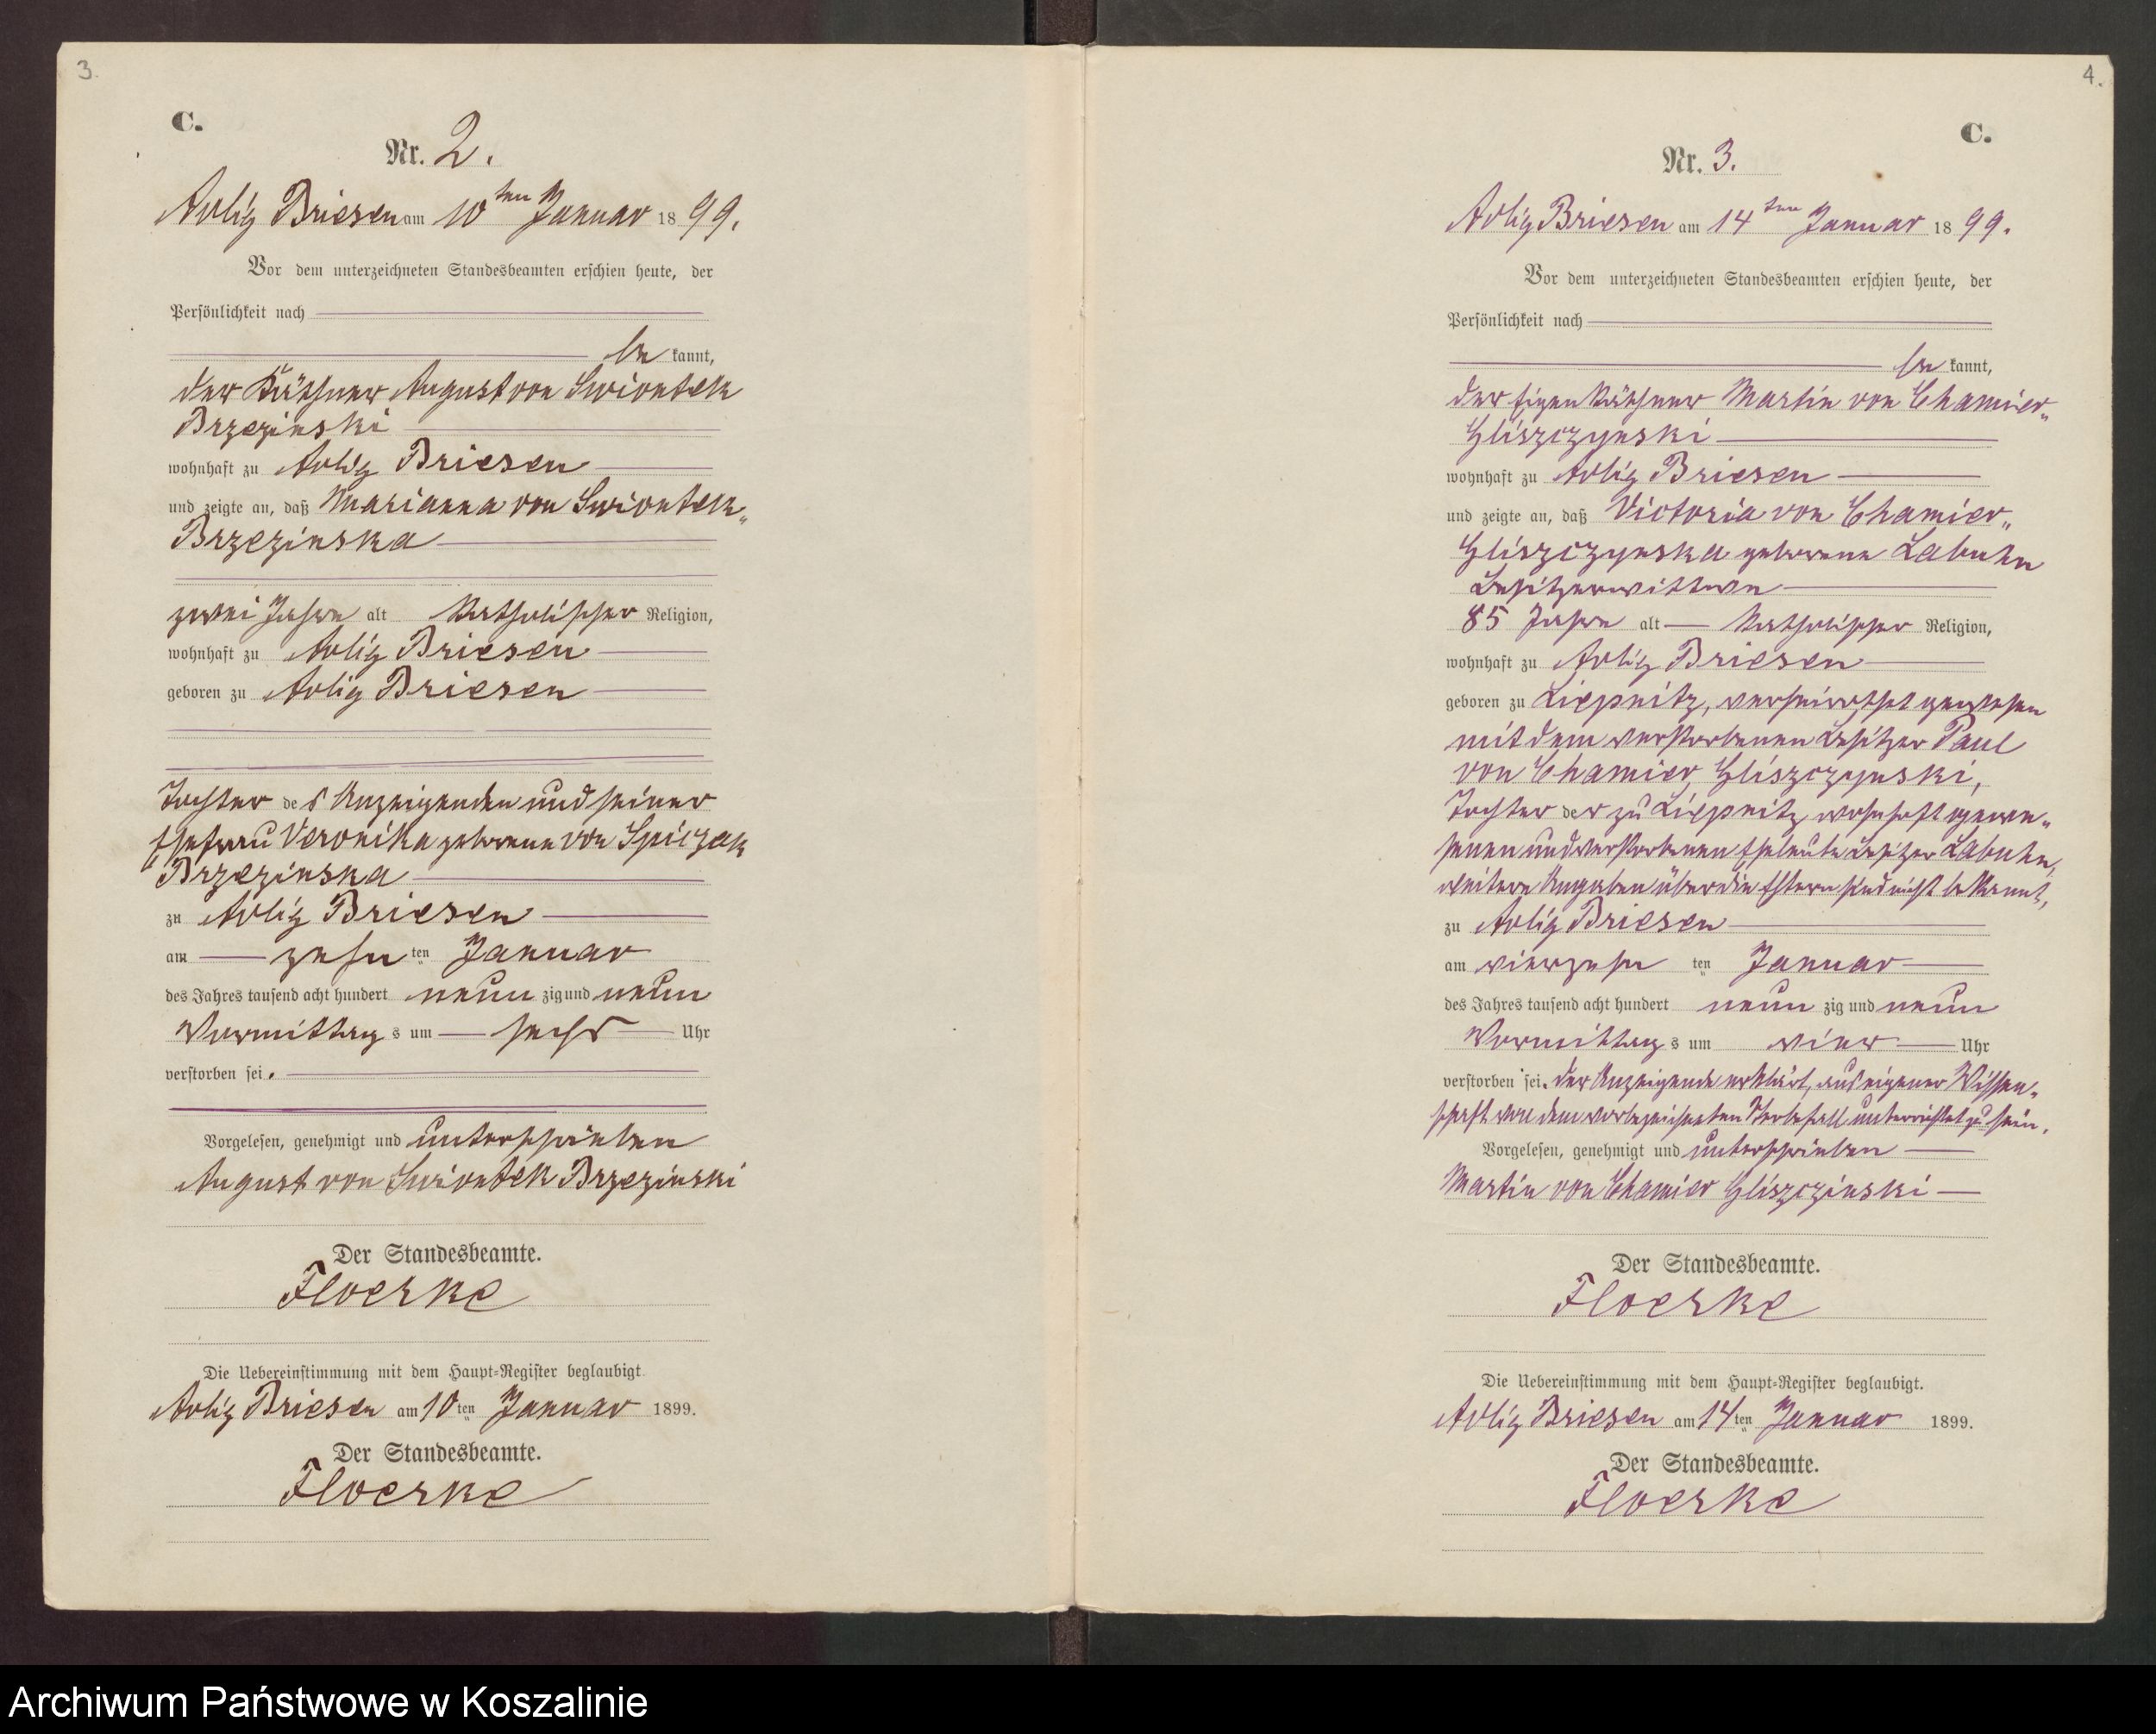 3.
C.
Nr. 2.
Adlig Briesen am 10ten Januar 1899.
Vor dem unterzeichneten Standesbeamten erschien heute, der
Persönlichkeit nach
be kannt,
der Käthner August von Swiontek
Brzezinski
wohnhaft zu Adlig Briesen
und zeigte an, daß Marianna von Swiontek-
Brzezinska
zwei Jahre alt katholischer Religion,
wohnhaft zu Adlig Briesen
geboren zu Adlig Briesen
Tochter des Anzeigenden und seiner
Ehefrau Veronika geborene von Spiczak
Brzezinska
zu Adlig Briesen
am zehn ten Januar
des Jahres tausend acht hundert neun zig und neun
Vormittag s um sechs Uhr
verstorben sei.
Vorgelesen, genehmigt und unterschrieben
August von Swiontek Brzezinski
Der Standesbeamte.
Floerke
Die Uebereinstimmung mit dem Haupt-Register beglaubigt.
Adlig Briesen am 10ten Januar 1899.
Der Standesbeamte.
Floerke
4.
C.
Nr. 3.
Adlig Briesen am 14ten Januar 1899.
Vor dem unterzeichneten Standesbeamten erschien heute, der
Persönlichkeit nach
be kannt,
der Eigenkäthner Martin von Chamier-
Gliszczynski
wohnhaft zu Adlig Briesen
und zeigte an, daß Victoria von Chamier-
Gliszczynska geborene Labuhn
Besitzerwittwe
85 Jahre alt katholischer Religion,
wohnhaft zu Adlig Briesen
geboren zu Liepnitz, verheirathet gewesen
mit dem verstorbenen Besitzer Paul
von Chamier Gliszczynski,
Tochter der zu Liepnitz wohnhaft gewe-
senen und verstorbenen Eheleute Besitzer Labuhn,
weitere Angaben über die Eltern sind nicht bekannt,
zu Adlig Briesen
am vierzehn ten Januar
des Jahres tausend acht hundert neun zig und neun
Vormittag s um vier Uhr
verstorben sei. Der Anzeigende erklärt, aus eigener Wissen-
schaft von dem vorbezeichneten Sterbefall unterrichtet zu sein.
Vorgelesen, genehmigt und unterschrieben
Martin von Chamier Gliszczinski
Der Standesbeamte.
Floerke
Die Uebereinstimmung mit dem Haupt-Register beglaubigt.
Adlig Briesen am 14ten Januar 1899.
Der Standesbeamte.
Floerke
Archiwum Państwowe w Koszalinie